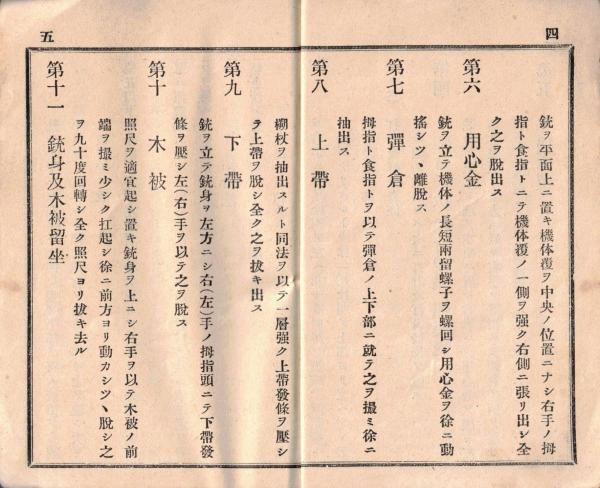 四
銃ヲ平面上ニ置キ機体覆ヲ中央ノ位置ニナシ右手ノ拇
指ト食指トニテ機体覆ノ一側ヲ强ク右側ニ張リ出シ全
ク之ヲ脫出ス
第六 用心金
銃ヲ立テ機体ノ長短兩留螺子ヲ螺回シ用心金ヲ徐ニ動
搖シツヽ離脫ス
第七 彈倉
拇指ト食指トヲ以テ彈倉ノ上下部ニ就テ之ヲ撮ミ徐ニ
抽出ス
第八 上帶
槊杖ヲ抽出スルト同法ヲ以テ一層强ク上帶發條ヲ壓シ
テ上帶ヲ脫シ全ク之ヲ拔キ出ス
第九 下帶
銃ヲ立テ銃身ヲ左方ニシ右(左)手ノ拇指頭ニテ下帶發
條ヲ壓シ左(右)手ヲ以テ之ヲ脫ス
第十 木被
照尺ヲ適宜起シ置キ銃身ヲ上ニシ右手ヲ以テ木被ノ前
端ヲ撮ミ少シク扛起シ徐ニ前方ヨリ動カシツヽ脫シ之
ヲ九十度回轉シ全ク照尺ヨリ拔キ去ル
第十一 銃身及木被留坐
五